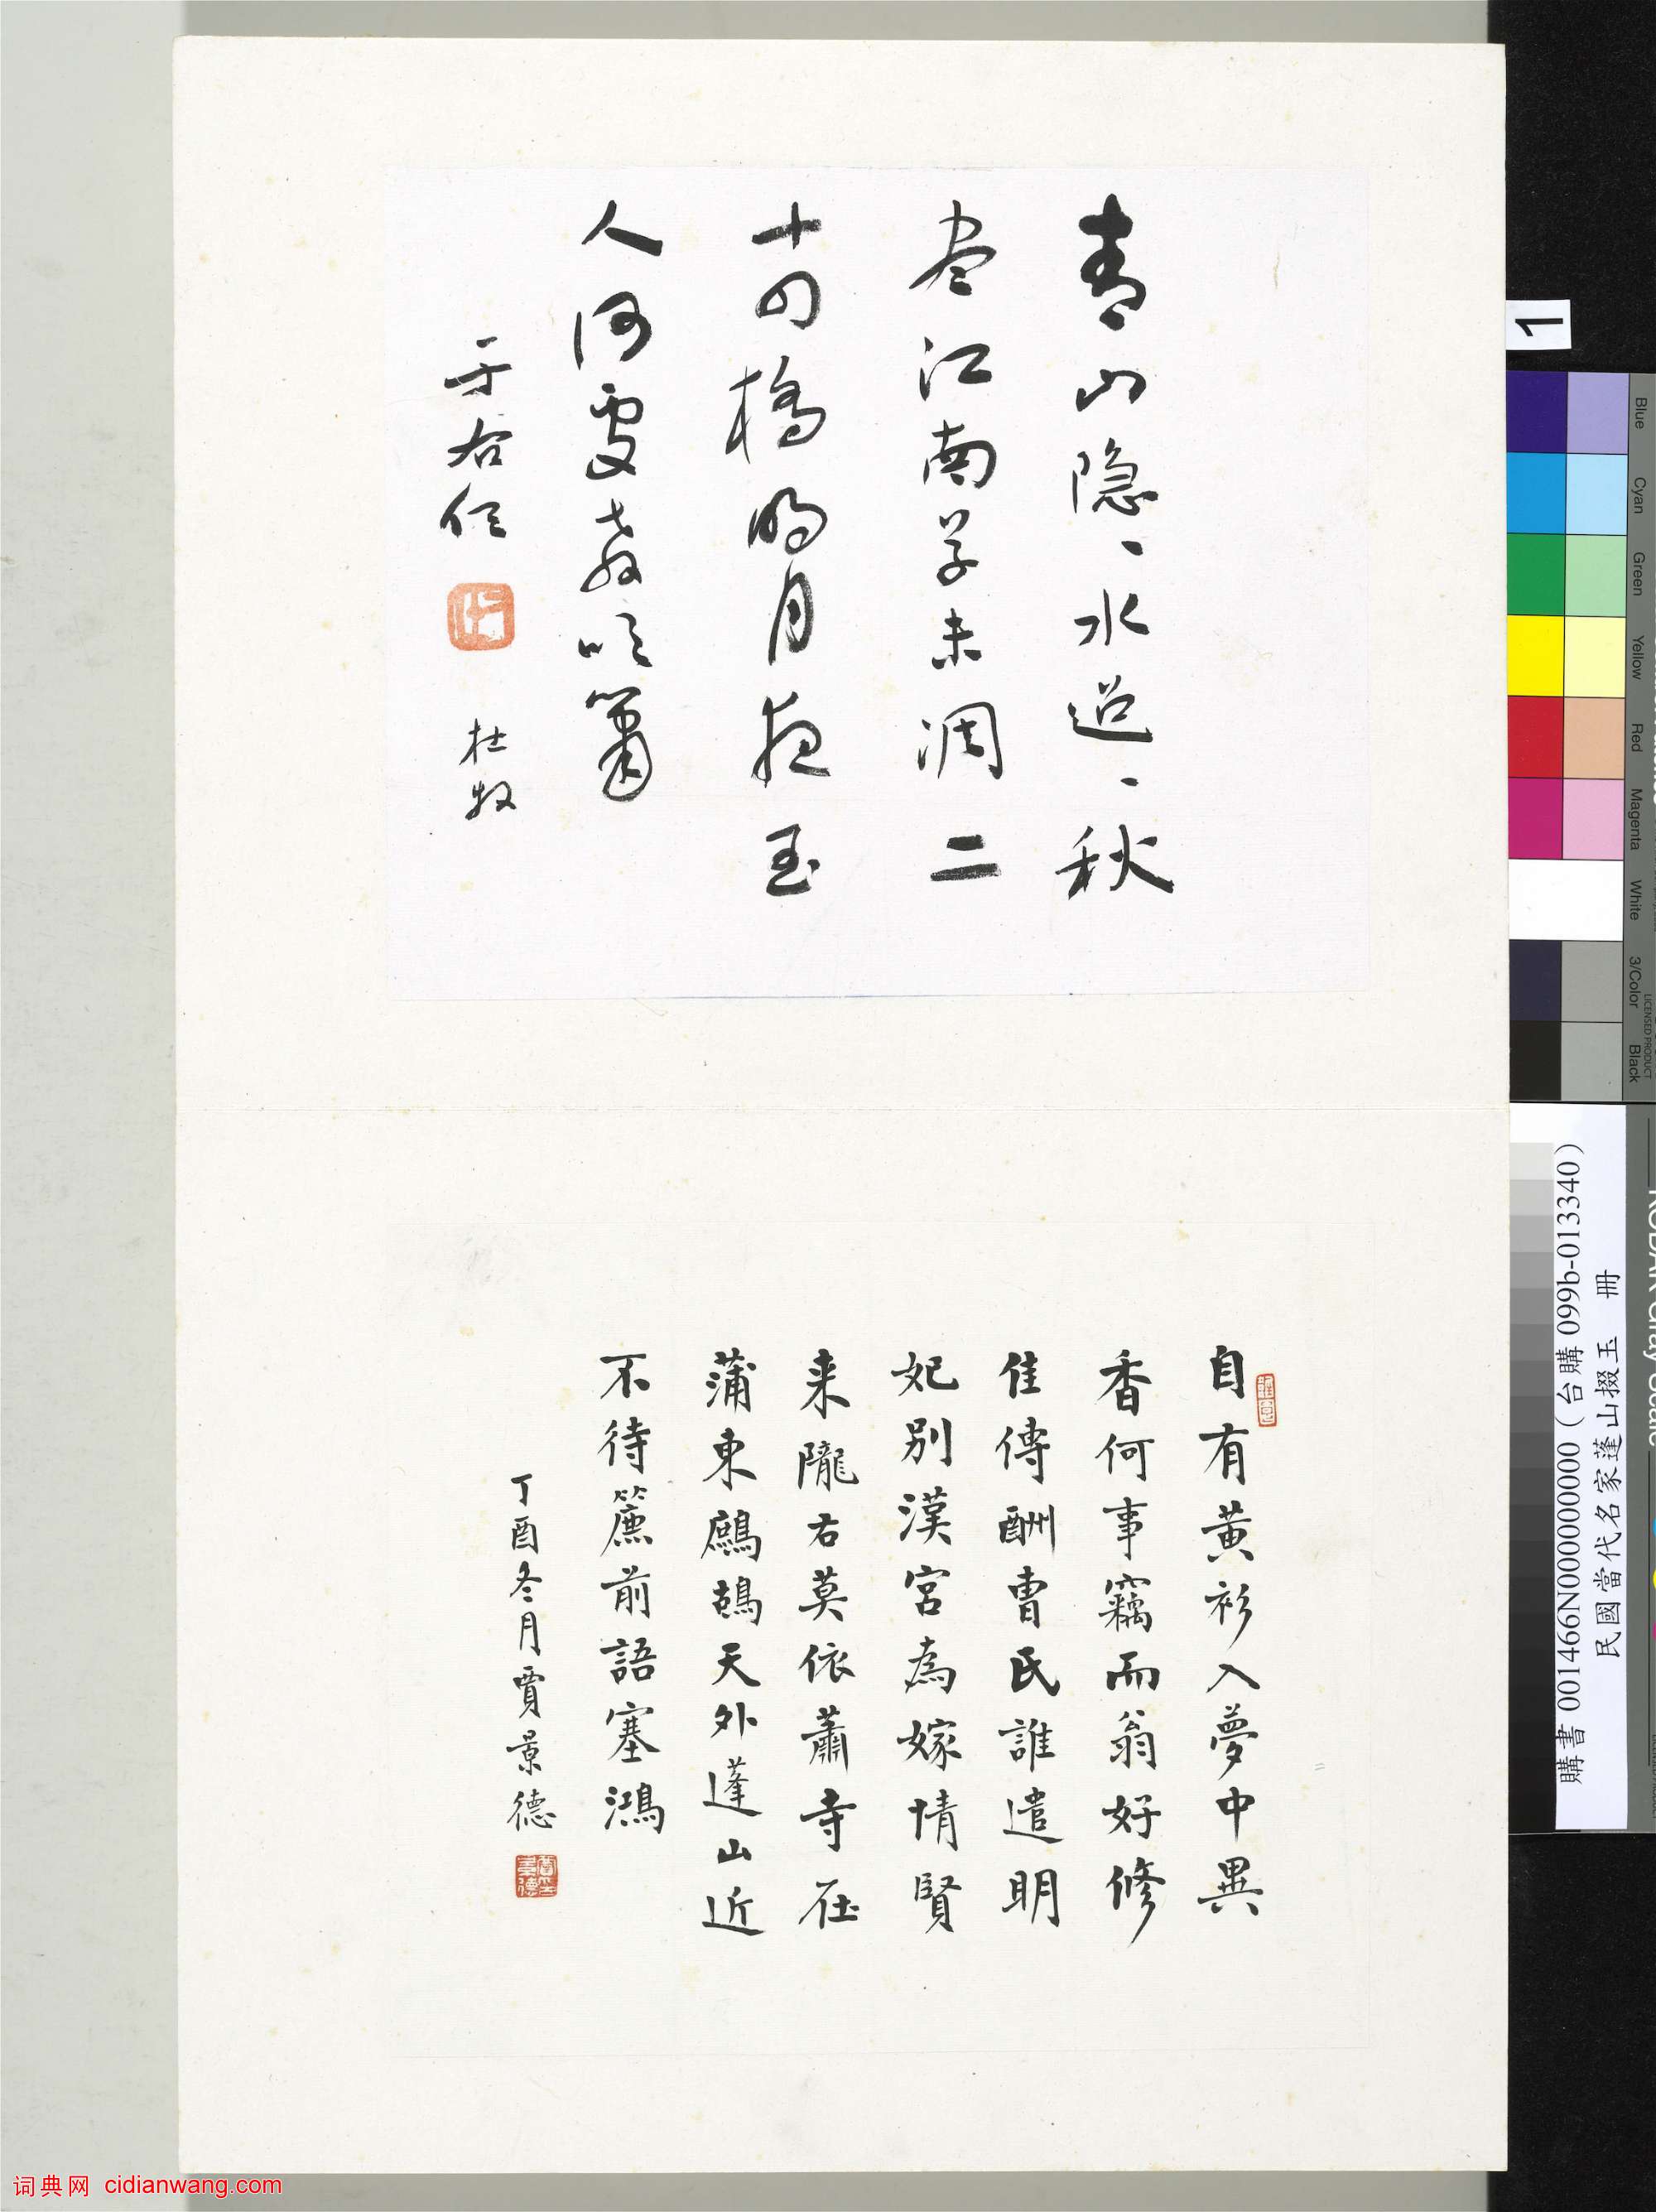 青山隐〻水迢〻秋
尽江南草未凋二
十四橋明月夜玉
人何處教吹簫
于右任
杜牧
自有黃衫入夢中異
香何事竊而翁好修
佳傳酬曹氏誰遣明
妃別漢宮為嫁情賢
来隴右莫依蕭寺在
蒲東鷓鴣天外蓬山近
不待簾前語塞鴻
丁酉冬月賈景德
1
Blue
Cyan
Green
Yellow
Red
Magenta
White
3/Color
Black
LICENSED PRODUCT
購書 001466N000000000 (台購 099b-013340)
民國當代名家蓬山掇玉 冊
词典网 cidianwang.com